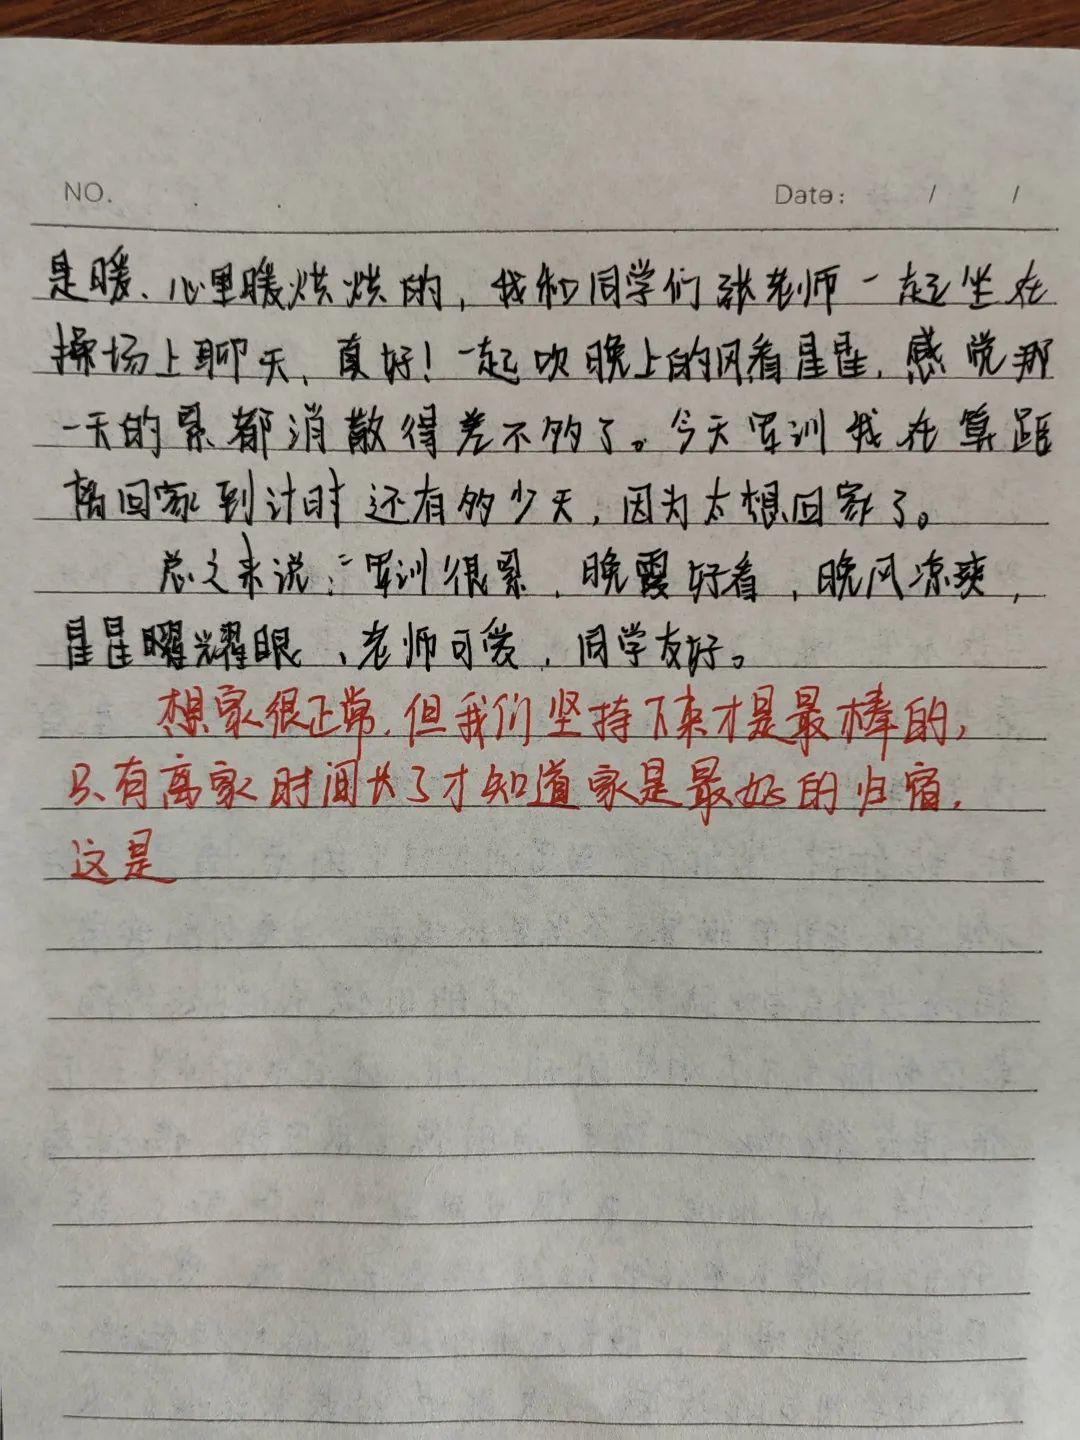 NO.
Date: / /
是暖、心里暖烘烘的，我和同学们张老师一起坐在
操场上聊天，真好！一起吹晚上的风看星星，感觉那
一天的累都消散得差不多了。今天军训我在算距
离回家到计时还有多少天，因为太想回家了。
总之来说：军训很累，晚霞好看，晚风凉爽，
星星曜耀眼、老师可爱，同学友好。
想家很正常，但我们坚持下来才是最棒的，
只有离家时间长了才知道家是最好的归宿，
这是